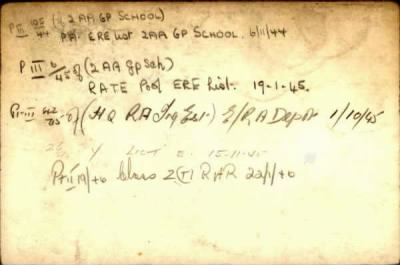 P III 105/44 (2 AA GP SCHOOL)
PA. ERE List 2 AA GP SCHOOL. 6/11/44
P III 6/45 of (2 AA Gp Sch)
RATE P of ERE List. 19-1-45.
Pt III of (HQ RA Trg Est.) E/RA Depot 1/10/45
LIST 15-11-45
Pt II 19/46 Class Z (T) RAR 22/1/46